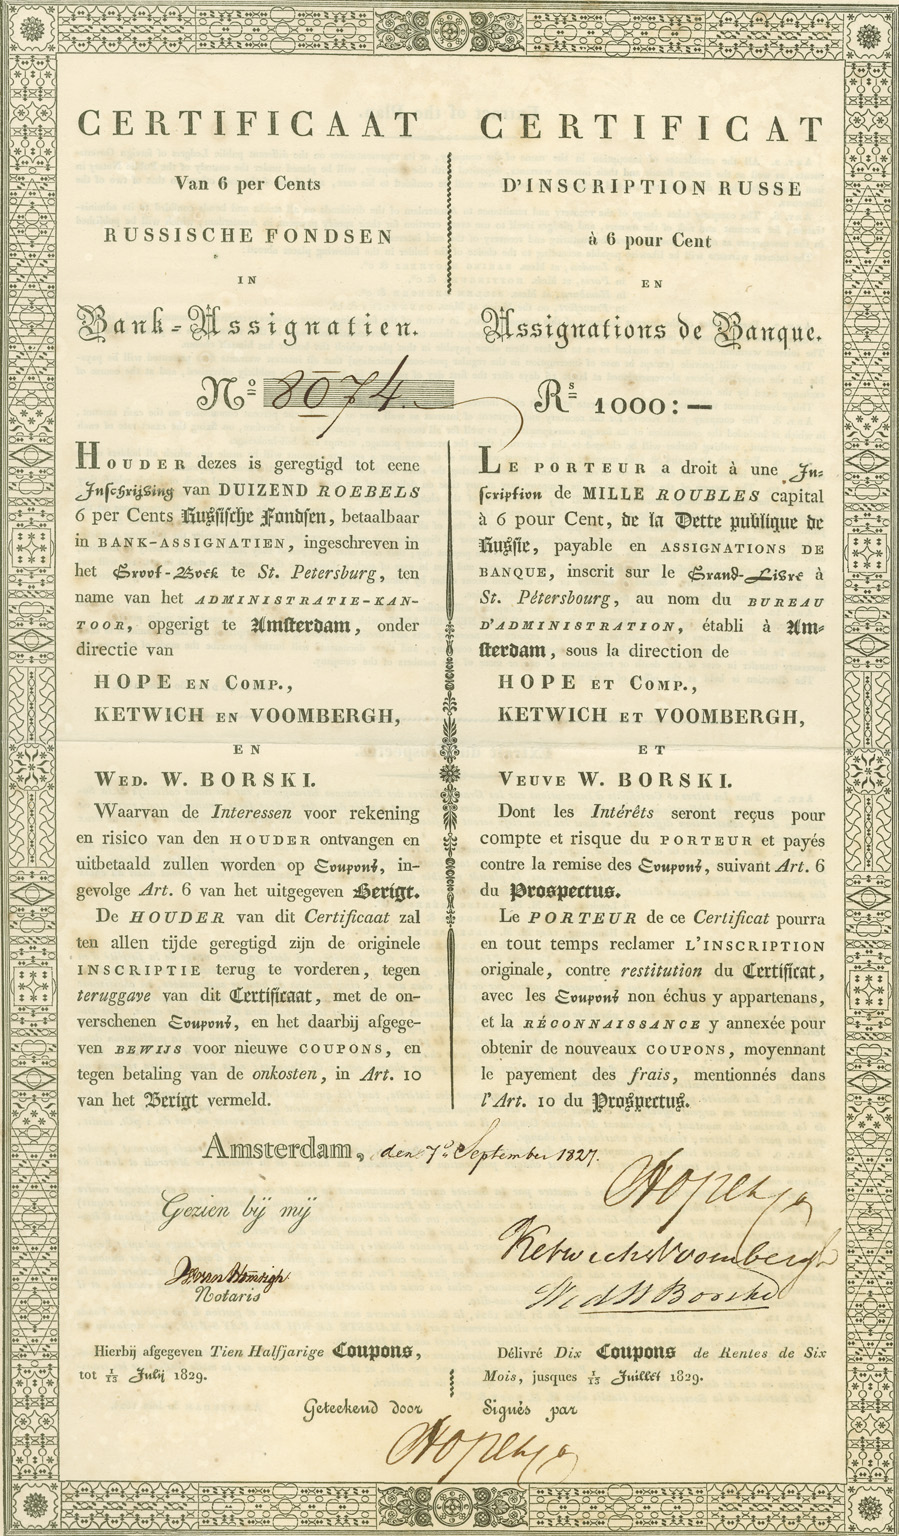 CERTIFICAAT
Van 6 per Cents
RUSSISCHE FONDSEN
IN
Bank-Assignatien.
CERTIFICAT
D'INSCRIPTION RUSSE
à 6 pour Cent
EN
Assignations de Banque.
Nº 8074. Rs 1000:—
HOUDER dezes is geregtigd tot eene
Inschrijving van DUIZEND ROEBELS
6 per Cents Russische Fondsen, betaalbaar
in BANK-ASSIGNATIEN, ingeschreven in
het Groot-Boek te St. Petersburg, ten
name van het ADMINISTRATIE-KAN-
TOOR, opgerigt te Amsterdam, onder
directie van
HOPE EN COMP.,
KETWICH EN VOOMBERGH,
EN
WED. W. BORSKI.
Waarvan de Interessen voor rekening
en risico van den HOUDER ontvangen en
uitbetaald zullen worden op Coupons, in-
gevolge Art. 6 van het uitgegeven Berigt.
De HOUDER van dit Certificaat zal
ten allen tijde geregtigd zijn de originele
INSCRIPTIE terug te vorderen, tegen
teruggave van dit Certificaat, met de on-
verschenen Coupons, en het daarbij afgege-
ven BEWIJS voor nieuwe COUPONS, en
tegen betaling van de onkosten, in Art. 10
van het Berigt vermeld.
LE PORTEUR a droit à une In-
scription de MILLE ROUBLES capital
à 6 pour Cent, de la Dette publique de
Russie, payable en ASSIGNATIONS DE
BANQUE, inscrit sur le Grand-Livre à
St. Pétersbourg, au nom du BUREAU
D'ADMINISTRATION, établi à Am-
sterdam, sous la direction de
HOPE ET COMP.,
KETWICH ET VOOMBERGH,
ET
VEUVE W. BORSKI.
Dont les Intérêts seront reçus pour
compte et risque du PORTEUR et payés
contre la remise des Coupons, suivant Art. 6
du Prospectus.
Le PORTEUR de ce Certificat pourra
en tout temps reclamer L'INSCRIPTION
originale, contre restitution du Certificat,
avec les Coupons non échus y appartenans,
et la RÉCONNAISSANCE y annexée pour
obtenir de nouveaux COUPONS, moyennant
le payement des frais, mentionnés dans
l'Art. 10 du Prospectus.
Amsterdam, den 7º September 1827.
Gezien bij mij
Notaris
Hope
Ketwich & Voombergh
Wed W Borski
Hierbij afgegeven Tien Halfjarige Coupons,
tot 1/13 Julij 1829.
Délivré Dix Coupons de Rentes de Six
Mois, jusques 1/13 Juillet 1829.
Geteekend door Signés par
Hope